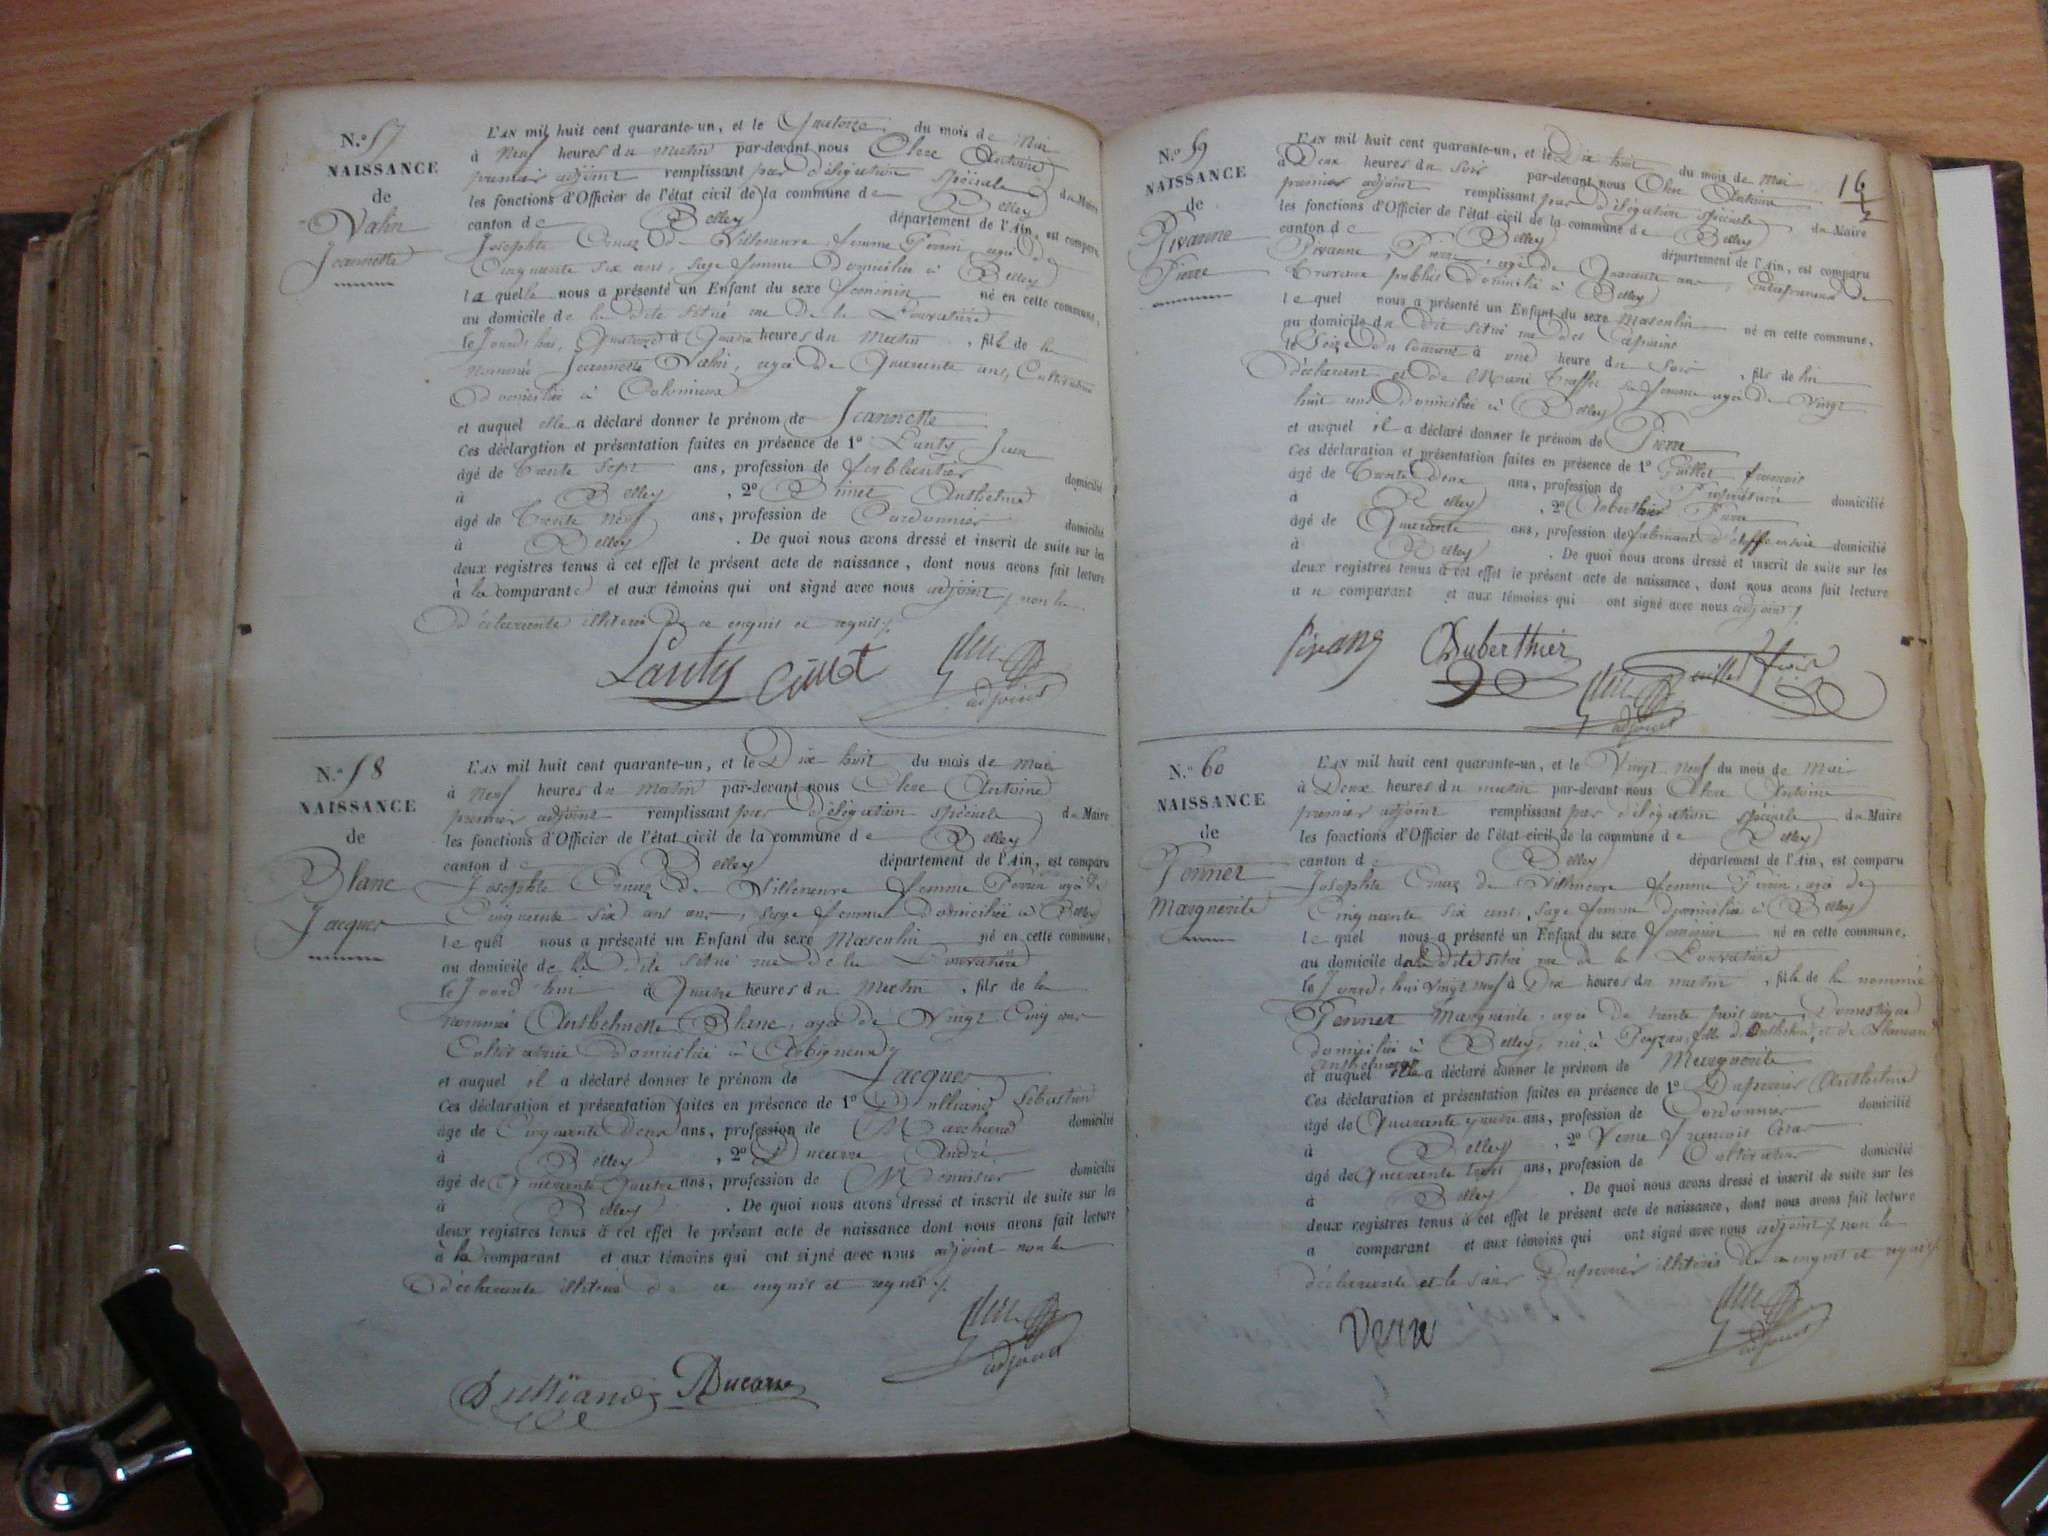 N.º 57
NAISSANCE
de
Vahin
Jeannette
L'AN mil huit cent quarante-un, et le Quatorze du mois de Mai
à Neuf heures du matin par-devant nous Clerc Antoine
premier adjoint remplissant par délégation spéciale du Maire
les fonctions d'Officier de l'état civil de la commune de Belley
canton de Belley département de l'Ain, est comparu
Josephte de Villeneuve femme Perrin agée de
Cinquante six ans, sage femme domiciliée à Belley
laquelle nous a présenté un Enfant du sexe féminin né en cette commune,
au domicile de la dite situé rue de la
le Jourd'hui, Quatorze à Quatre heures du Matin, fille de la
nommée Jeannette Vahin, agée de Quarante ans, Cultivatrice
domiciliée à Colomieux
et auquel elle a déclaré donner le prénom de Jeannette
Ces déclaration et présentation faites en présence de 1º Lanty Jean
âgé de trente sept ans, profession de ferblantier domicilié
à Belley, 2º Anthelme
âgé de Trente neuf ans, profession de Cordonnier domicilié
à Belley. De quoi nous avons dressé et inscrit de suite sur les
deux registres tenus à cet effet le présent acte de naissance, dont nous avons fait lecture
à la comparante et aux témoins qui ont signé avec nous adjoint, non la
déclarante illitérée de ce enquis et requis
Lanty
adjoint
N.º 58
NAISSANCE
de
Blanc
Jacques
L'AN mil huit cent quarante-un, et le Dix huit du mois de mai
à neuf heures du matin par-devant nous Clerc Antoine
premier adjoint remplissant par délégation spéciale du Maire
les fonctions d'Officier de l'état civil de la commune de Belley
canton de Belley département de l'Ain, est comparu
Josephte de Villeneuve femme Perrin agée de
Cinquante six ans ans, sage femme domiciliée à Belley
lequel nous a présenté un Enfant du sexe Masculin né en cette commune,
au domicile de la dite situé rue de la
le Jourd'hui à Quatre heures du Matin, fils de la
nommée Anthelmette Blanc, agée de Vingt Cinq ans
Cultivatrice domiciliée à Arbignieu
et auquel il a déclaré donner le prénom de Jacques
Ces déclaration et présentation faites en présence de 1º Dulliand Sébastien
âgé de Cinquante deux ans, profession de Marchand domicilié
à Belley, 2º Ducarre André
âgé de Quarante Quatre ans, profession de Menuisier domicilié
à Belley. De quoi nous avons dressé et inscrit de suite sur les
deux registres tenus à cet effet le présent acte de naissance dont nous avons fait lecture
à la comparant et aux témoins qui ont signé avec nous adjoint non la
déclarante illitérée de ce enquis et requis
adjoint
Dulliand Ducarre
N.º 59
NAISSANCE
de
Pivanne
Pierre
16
L'AN mil huit cent quarante-un, et le Dix huit du mois de Mai
à Deux heures du Soir par-devant nous Clerc Antoine
premier adjoint remplissant par délégation spéciale du Maire
les fonctions d'Officier de l'état civil de la commune de Belley
canton de Belley département de l'Ain, est comparu
Pivanne Pierre, agé de Quarante ans, entrepreneur de
travaux publics domicilié à Belley
lequel nous a présenté un Enfant du sexe Masculin né en cette commune,
au domicile du dit situé rue des Capucins
le Seize du Courant à une heure du Soir, fils de lui
déclarant et de Marie sa femme agée de Vingt
huit ans domiciliée à Belley
et auquel il a déclaré donner le prénom de Pierre
Ces déclaration et présentation faites en présence de 1º Guillet françois
âgé de Trente deux ans, profession de Propriétaire domicilié
à Belley, 2º Auberthier Pierre
âgé de Quarante ans, profession de fabricant d'étoffe en soie domicilié
à Belley. De quoi nous avons dressé et inscrit de suite sur les
deux registres tenus à cet effet le présent acte de naissance, dont nous avons fait lecture
au comparant et aux témoins qui ont signé avec nous adjoint
pivang Auberthier Guillet
adjoint
N.º 60
NAISSANCE
de
Ponnet
Marguerite
L'AN mil huit cent quarante-un, et le Vingt neuf du mois de Mai
à Deux heures du matin par-devant nous Clerc Antoine
premier adjoint remplissant par délégation spéciale du Maire
les fonctions d'Officier de l'état civil de la commune de Belley
canton de Belley département de l'Ain, est comparu
Josephte de Villeneuve femme Perrin, agée de
Cinquante six ans, sage femme domiciliée à Belley
lequel nous a présenté un Enfant du sexe féminin né en cette commune,
au domicile de la dite situé rue de la
le Jourd'hui vingt neuf à Dix heures du matin, fille de la nommée
Ponnet Marguerite, agée de trente huit ans, Domestique
domiciliée à Belley, née à Peyzieu, fille d'Anthelme, et de
Anthelmette
et auquel elle a déclaré donner le prénom de Marguerite
Ces déclaration et présentation faites en présence de 1º Anthelme
âgé de Quarante quatre ans, profession de Cordonnier domicilié
à Belley, 2º Verne françois
âgé de Quarante trois ans, profession de Cultivateur domicilié
à Belley. De quoi nous avons dressé et inscrit de suite sur les
deux registres tenus à cet effet le présent acte de naissance, dont nous avons fait lecture
a comparant et aux témoins qui ont signé avec nous adjoint, non la
déclarante et le sieur illitérés de ce enquis et requis
adjoint